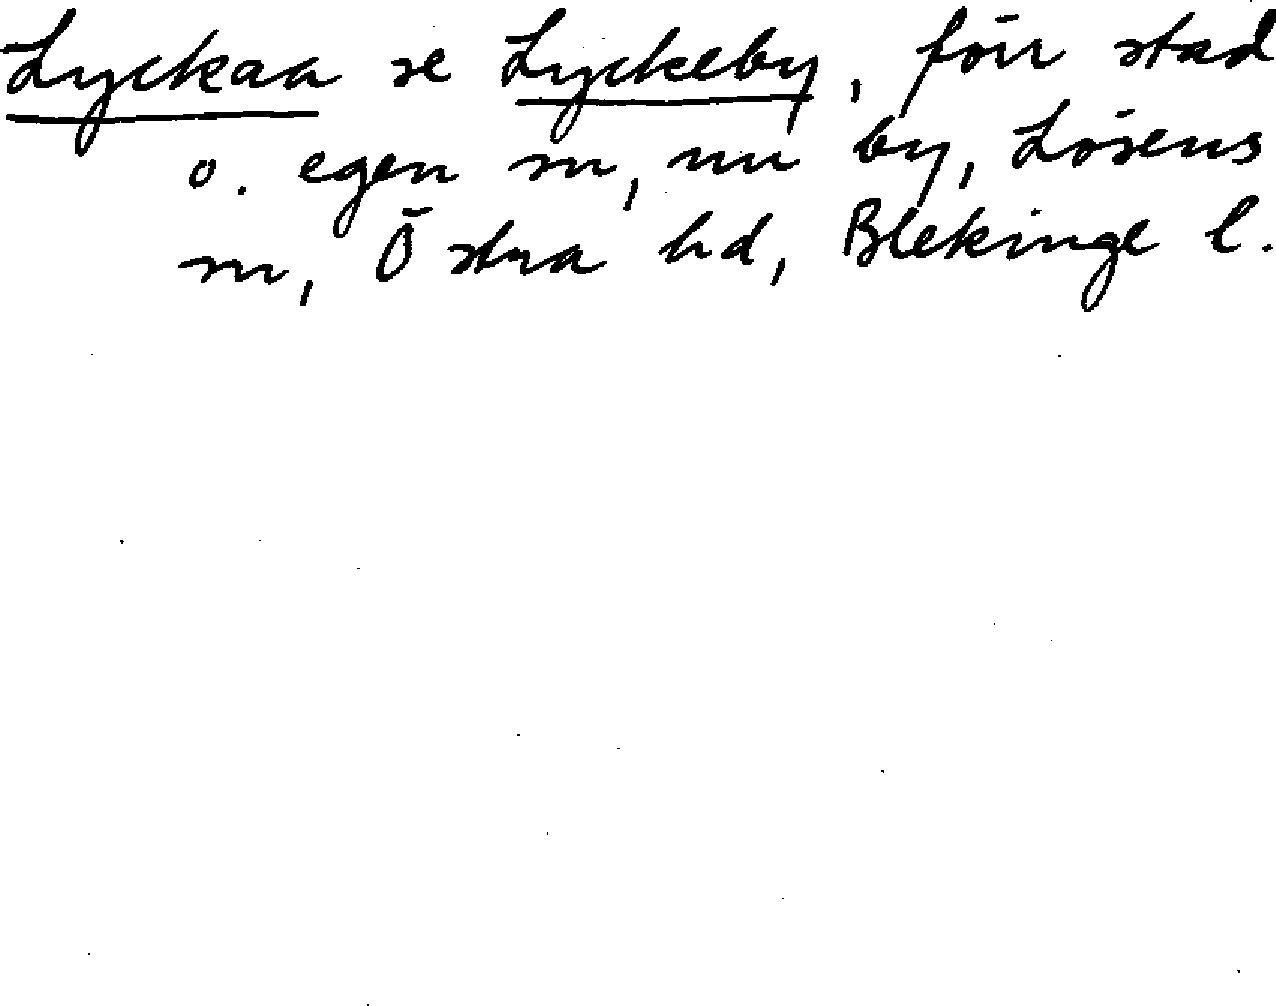 Lyckaa se Lyckeby, förr stad
o. egen sn, nu by, Lösens
sn, Östra hd, Blekinge l.